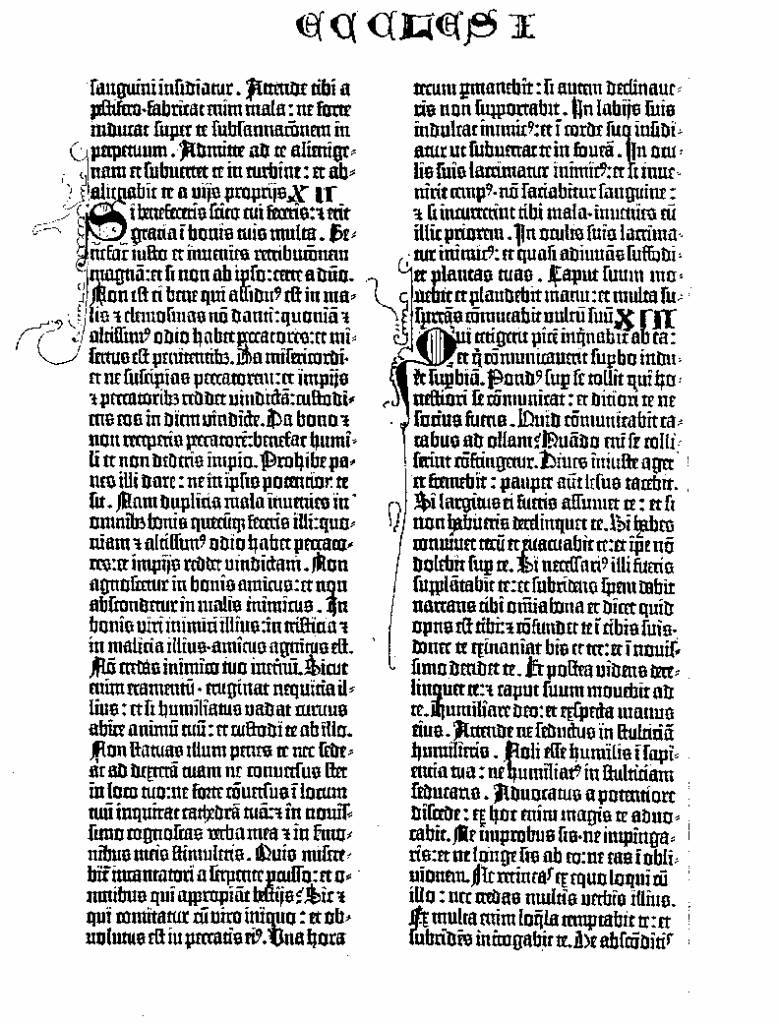 ECCLESI
sanguini insidiatur. Attende tibi a
pestifero·fabricat enim mala: ne forte
inducat super te subsannacōnem in
perpetuum. Admitte ad te alienige-
nam et subuertet te in turbine: et ab-
alienabit te a vijs proprijs. XII
Si benefeceris scito cui feceris: ⁊ erit
gratia ī bonis tuis multa. Be-
nefac iusto et inuenies retribucōnem
magnā: et si non ab ipso: certe a dn̄o.
Non est ei bene qui assiduꝰ est in ma-
lis ⁊ elemosinas nō danti: quoniā ⁊
altissimꝰ odio habet peccatores: et mi-
sertus est penitentibꝫ. Da misericordi-
et ne suscipias peccatorem: et impijs
⁊ peccatoribꝫ reddet vindictā: custodi-
ens eos in diem vindicte. Da bono ⁊
non receperis peccatorē: benefac humi-
li et non dederis impio. Prohibe pa-
nes illi dare: ne in ipsis potentior te
sit. Nam duplicia mala inuenies in
omnibꝫ bonis quecūqꝫ feceris illi: quo-
niam ⁊ altissimꝰ odio habet peccato-
res: et impijs reddet vindictam. Non
agnoscetur in bonis amicus: et non
abscondetur in malis inimicus. In
bonis viri inimici illius: in tristicia ⁊
in malicia illius·amicus agnitus est.
Nō credas inimico tuo ineternū. Sicut
enim eramentū·eruginat nequicia il-
lius: et si humiliatus vadat curuus
abice animum tuū: et custodi te ab illo.
Non statuas illum penes te nec sede-
at ad dexterā tuam ne conuersus stet
in loco tuo: ne forte cōuersus ī locum
tuū inquirat cathedrā tuā: ⁊ in nouis-
simo cognoscas verba mea ⁊ in ꝑmo-
nibus meis stimuleris. Quis misere-
bit̄ incantatori a serpente ꝑcusso: et o-
mnibus qui appropiāt bestijs? Sic ⁊
qui comitatur cū viro iniquo: et ob-
uolutus est in peccatis eiꝰ. Una hora
tecum ꝑmanebit: si autem declinaue-
ris non supportabit. In labijs suis
indulcat inimicꝰ: et ī corde suo insidi-
atur ut subuertat te in foueā. In ocu-
lis suis lacrimatur inimicꝰ: et si inue-
nerit tempꝰ·nō saciabitur sanguine:
⁊ si incurrerint tibi mala·inuenies eū
illic priorem. In oculis suis lacrima-
tur inimicꝰ: et quasi adiuuās suffodi-
et plantas tuas. Caput suum mo-
uebit et plaudebit manu: et multa su-
surrās cōmutabit vultū suū. XIII
Qui tetigerit picē inq̄nabit̄ ab ea:
et q̄ cōmunicauerit suꝑbo indu-
et suꝑbiā. Pondꝰ suꝑ se tollit qui ho-
nestiori se cōmunicat: et ditiori te ne
socius fueris. Quid cōmunicabit ca-
cabus ad ollam? Quādo enī se colli-
serint cōfringetur. Diues iniuste aget
et fremebit: pauper aūt lesus tacebit.
Si largitus ei fueris assumet te: et si
non habueris derelinquet te. Si habes
conuiuet tecū et euacuabit te: et ip̄e nō
dolebit suꝑ te. Si necessariꝰ illi fueris
supplātabit te: et subridens spem dabit
narrans tibi om̄ia bona et dicet quid
opus est tibi: ⁊ cōfundet te ī cibis suis·
donec te exinaniat bis et ter: et ī nouis-
simo derideat te. Et postea videns dere-
linquet te: ⁊ caput suum mouebit ad
te. Humiliare deo: et exspecta manus
eius. Attende ne seductus in stulticiā
humilieris. Noli esse humilis ī sapi-
encia tua: ne humiliatꝰ in stulticiam
seducaris. Aduocatus a potentiore
discede: ex hoc enim magis te aduo-
cabit. Ne improbus sis·ne impinga-
ris: et ne longe sis ab eo: ne eas ī obli-
uionem. Ne retineas ex equo loqui cū
illo: nec credas multis verbis illius.
Ex multa enim loq̄la temptabit te: et
subridēs interrogabit te. De abscōditꝭ